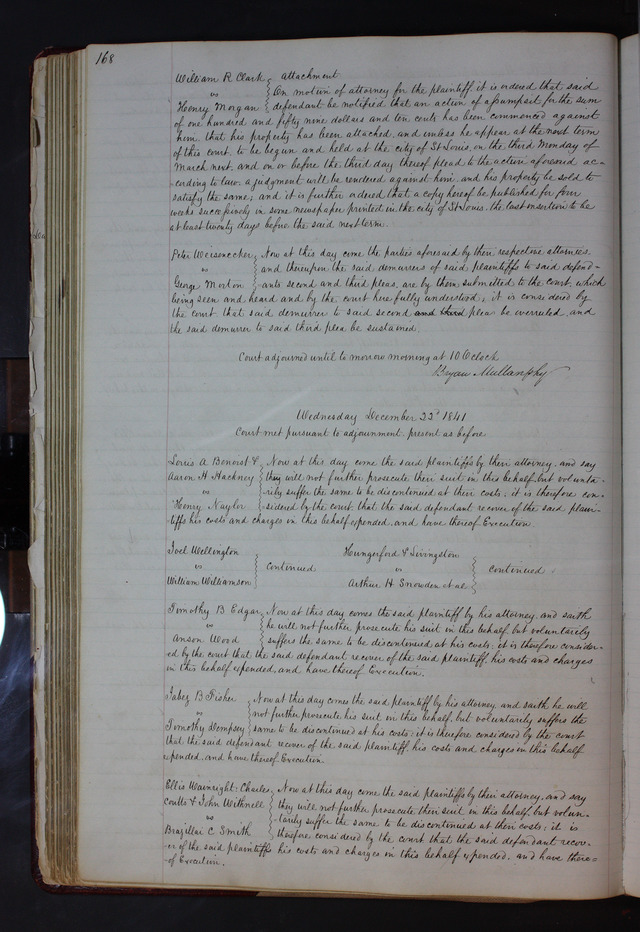 168
William R Clark } Attachment
vs } On motion of attorney for the plaintiff it is ordered that said
Henry Morgan } defendant be notified that an action of assumpsit for the sum
of one hundred and fifty nine dollars and ten cents has been commenced against
him, that his property has been attached, and unless he appear at the next term
of this court, to be begun and held at the city of St Louis, on the third Monday of
March next, and on or before the third day thereof plead to the action aforesaid ac-
cording to law, a judgment will be rendered against him, and his property be sold to
satisfy the same; and it is further ordered that a copy hereof be published for four
weeks successively in some newspaper printed in the city of St Louis, the last insertion to be
at least twenty days before the said next term.
Peter Weisenecker } Now at this day come the parties aforesaid by their respective attornies,
vs } and thereupon the said demurrers of said plaintiffs to said defend-
George Morton } ants second and third pleas, are by them submitted to the court, which
being seen and heard and by the court here fully understood, it is considered by
the court that said demurrer to said second and third pleas be overruled, and
the said demurrer to said third plea be sustained
Court adjourned until to morrow morning at 10 O'Clock
Bryan Mullanphy
Wednesday December 22d 1841
Court met pursuant to adjournment, present as before
Louis A Benoist & } Now at this day come the said plaintiffs by their attorney, and say
Aaron H Hackney } they will not further prosecute their suit in this behalf, but volunta-
vs } rily suffer the same to be discontinued at their costs; it is therefore con-
Henry Naylor } sidered by the court that the said defendant recover of the said plain-
tiffs his costs and charges in this behalf expended, and have thereof Execution
Joel Wellington } Hungerford & Livingston }
vs } continued vs } continued
William Williamson } Arthur H Snowden et al }
Timothy B Edgar } Now at this day comes the said plaintiff by his attorney, and saith
vs } he will not further prosecute his suit in this behalf, but voluntarily
Anson Wood } suffers the same to be discontinued at his costs; it is therefore consider-
ed by the court that the said defendant recover of the said plaintiff, his costs and charges
in this behalf expended, and have thereof Execution.
Jabez B Fisher } Now at this day comes the said plaintiff by his attorney and saith he will
vs } not further prosecute his suit in this behalf, but voluntarily suffers the
Timothy Dempsey } same to be discontinued at his costs; it is therefore considered by the court
that the said defendant recover of the said plaintiff, his costs and charges in this behalf
expended, and have thereof Execution.
Ellis Wainright, Charles } Now at this day come the said plaintiffs by their attorney, and say
Coutts & John Withnell } they will not further prosecute their suit in this behalf, but volun-
vs } tarily suffer the same to be discontinued at their costs; it is
Brazillai C Smith } therefore considered by the court that the said defendant recov-
er of the said plaintiffs his costs and charges in this behalf expended, and have there-
of Execution.